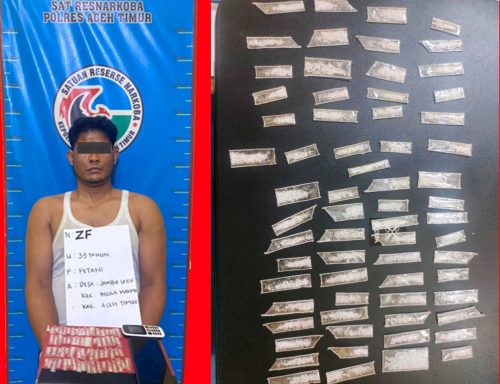 SAT RESNARKOBA
POLRES ACEH TIMUR
SATUAN RESERSE NARKOBA
N : ZF
U : 39 TAHUN
P : PETANI
A : DESA : JAMBO
KEC. INDRA MAKMU
KAB. ACEH TIMUR